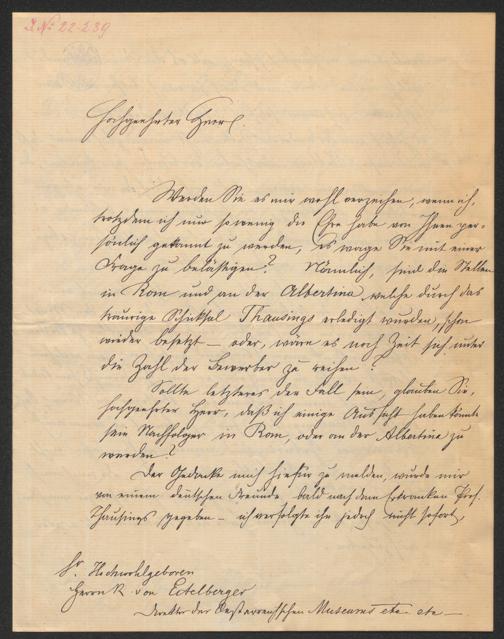 I.N. 22.239
Hochgeehrter Herr!
Werden Sie es mir wohl verzeihen, wenn ich,
trotzdem ich nur so wenig die Ehre habe von Ihnen per-
sönlich gekannt zu werden, es wage Sie mit einer
Frage zu belästigen? Nämlich, sind die Stellen
in Rom und an der Albertina, welche durch das
traurige Schicksal Thausings erledigt wurden, schon
wieder besetzt – oder, wäre es noch Zeit sich unter
die Zahl der Bewerber zu reihen?
Sollte letzteres der Fall sein, glauben Sie,
hochgeehrter Herr, daß ich einige Aussicht haben könnte
sein Nachfolger in Rom, oder an der Albertina zu
werden?
Der Gedanke mich hiefür zu melden, wurde mir
von einem deutschen Freunde bald nach dem Erkranken Prof.
Thausings gegeben – ich verfolgte ihn jedoch nicht sofort,
Sr Hochwohlgeboren
Herrn R. von Eitelberger
Direktor des Oesterreichischen Museums etc. etc. –